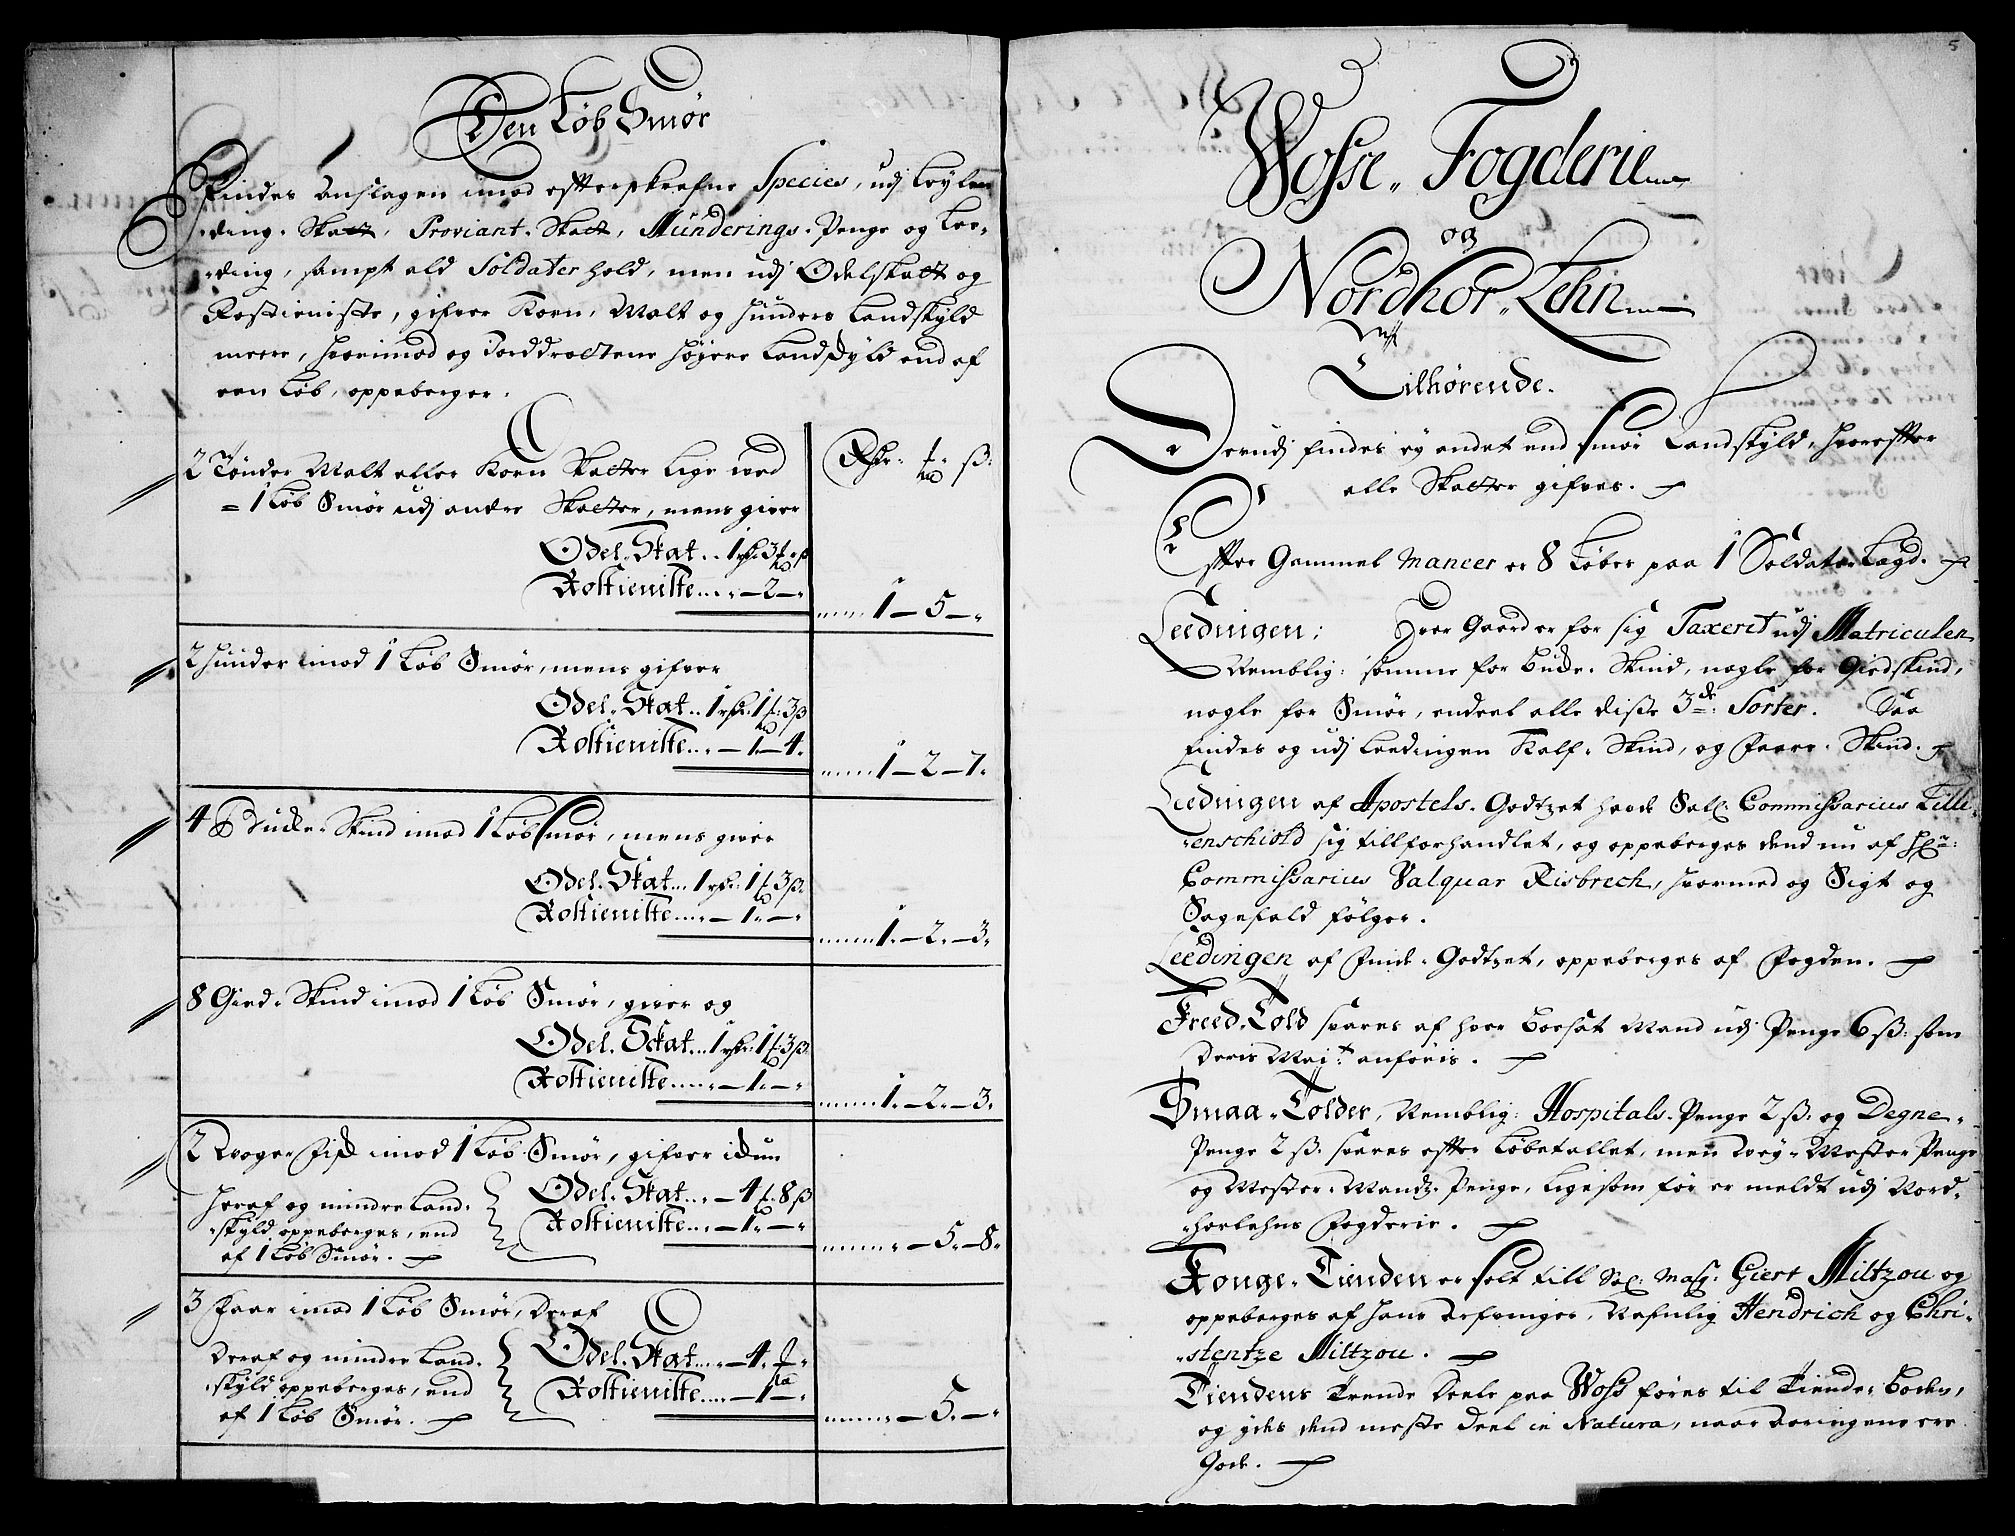 Een Løb Smør
Findes Anslagen imod effterskrefne Species, udj Leylen
ding. Skatt, Proviant. Skatt, Munderings. Penge og Lee-
ding, sampt ald Soldater hold, men udj Odelskatt og
Rostieniste, gifver Korn, Malt og Huuders Landskyld
meere, hvorimod og Jorddrottene høyere Landskyld end af
een Løb, oppeberger.
2 Tønder Malt eller Korn Skatter Lige ved
1 Løb Smør udj andre Skatter, mens giver
Rdr. mk ß:
Odel. Skat... 1 rdr: 3 mk - ß
Rostieniste.... - 2 - "
1 - 5 - "
2 Huuder imod 1 Løb Smør, mens gifver
Odel. Skat.. 1 rdr: 1 mk: 3 ß
Rostieniste... - 1 - 4.
1 - 2 - 7.
4 Bucke-Skind imod 1 Løb Smør, mens giver
Odel. Skat... 1 rdr: 1 mk 3 ß.
Rostieniste.... - 1. - "
1. - 2. - 3.
8 Gied-Skind imod 1 Løb Smør, giver og
Odel. Skat... 1 rdr: 1 mk: 3 ß
Rostieniste..... - 1. - "
1. - 2. - 3.
2 Woger Fisk imod 1 Løb Smør, gifver ickun
Heraf og mindre Land-
skyld oppeberges, end
af 1 Løb Smør.
Odel. Skat... - 4 mk: 8 ß
Rostieniste.... - 1. - "
- 5. - 8.
3 Faar imod 1 Løb Smør, Deraf
Deraf og mindre Land.
skyld oppeberges, end
af 1 Løb Smør.
Odel. Skat.... - 4. mk "
Rostieniste.... - 1 - "
- 5. - "
5
Wosse Fogderie
og
Nordhor Lehn
Tilhørende.
Derudj findes ey andet end Smør Landskyld, hvoreffter
alle Skatter gifves.
Effter Gammel Maneer er 8 Løber paa 1 Soldater Lægd.
Leedingen: Hver Gaard er for sig Taxerit udj Matriculen
Nemblig: somme for Bucke. Skind, nogle for Giedskind,
nogle for Smør, endeel alle disse 3de: Sorter. Saa
findes og udj Leedingen Kalf. Skind, og Faare. Skind.
Leedingen af Apostels. Godtzet hafde Sal: Commissarius Lilli-
enschiold sig tillforhandlet, og oppeberges dend nu af Hr:
Commissarius Valquar Risbrech, hvormed og Sigt og
Sagefald følger.
Leedingen af Munke. Godtzet, oppeberges af Fogden.
Freed. Told svares af hver Boesat Mand udj Penge 6 ß: som
Deris Maj:t anføris.
Smaa. Tolder, Nemblig: Hospitals. Penge 2 ß: og Degne-
Penge 2 ß. svares effter Løbetallet, men Wey-Mester Penge
og Mester-Mandtz. Penge, lige som før er meldt udj Nord-
horlehns Fogderie.
Konge. Tienden er solt till Sal: Mag: Giert Miltzou og
oppeberges af hans Arfvinger, Nafnlig Hendrich og Chri-
stentze Miltzou.
Tiendens Trende Deele paa Woss føres til Tiende. Boder,
og ydes dend meste Deel in Natura, naar Aaringene ere
Gode.